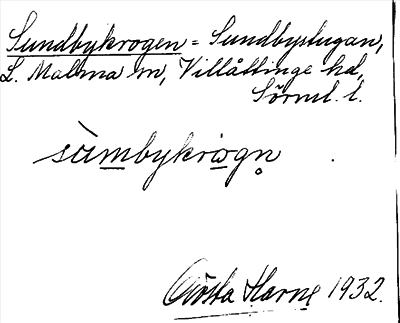 Sundbykrogen = Sundbystugan,
L. Malma sn, Villåttinge hd,
Sörml. l.
sùmbykrωgn̥
Gösta Harne 1932.